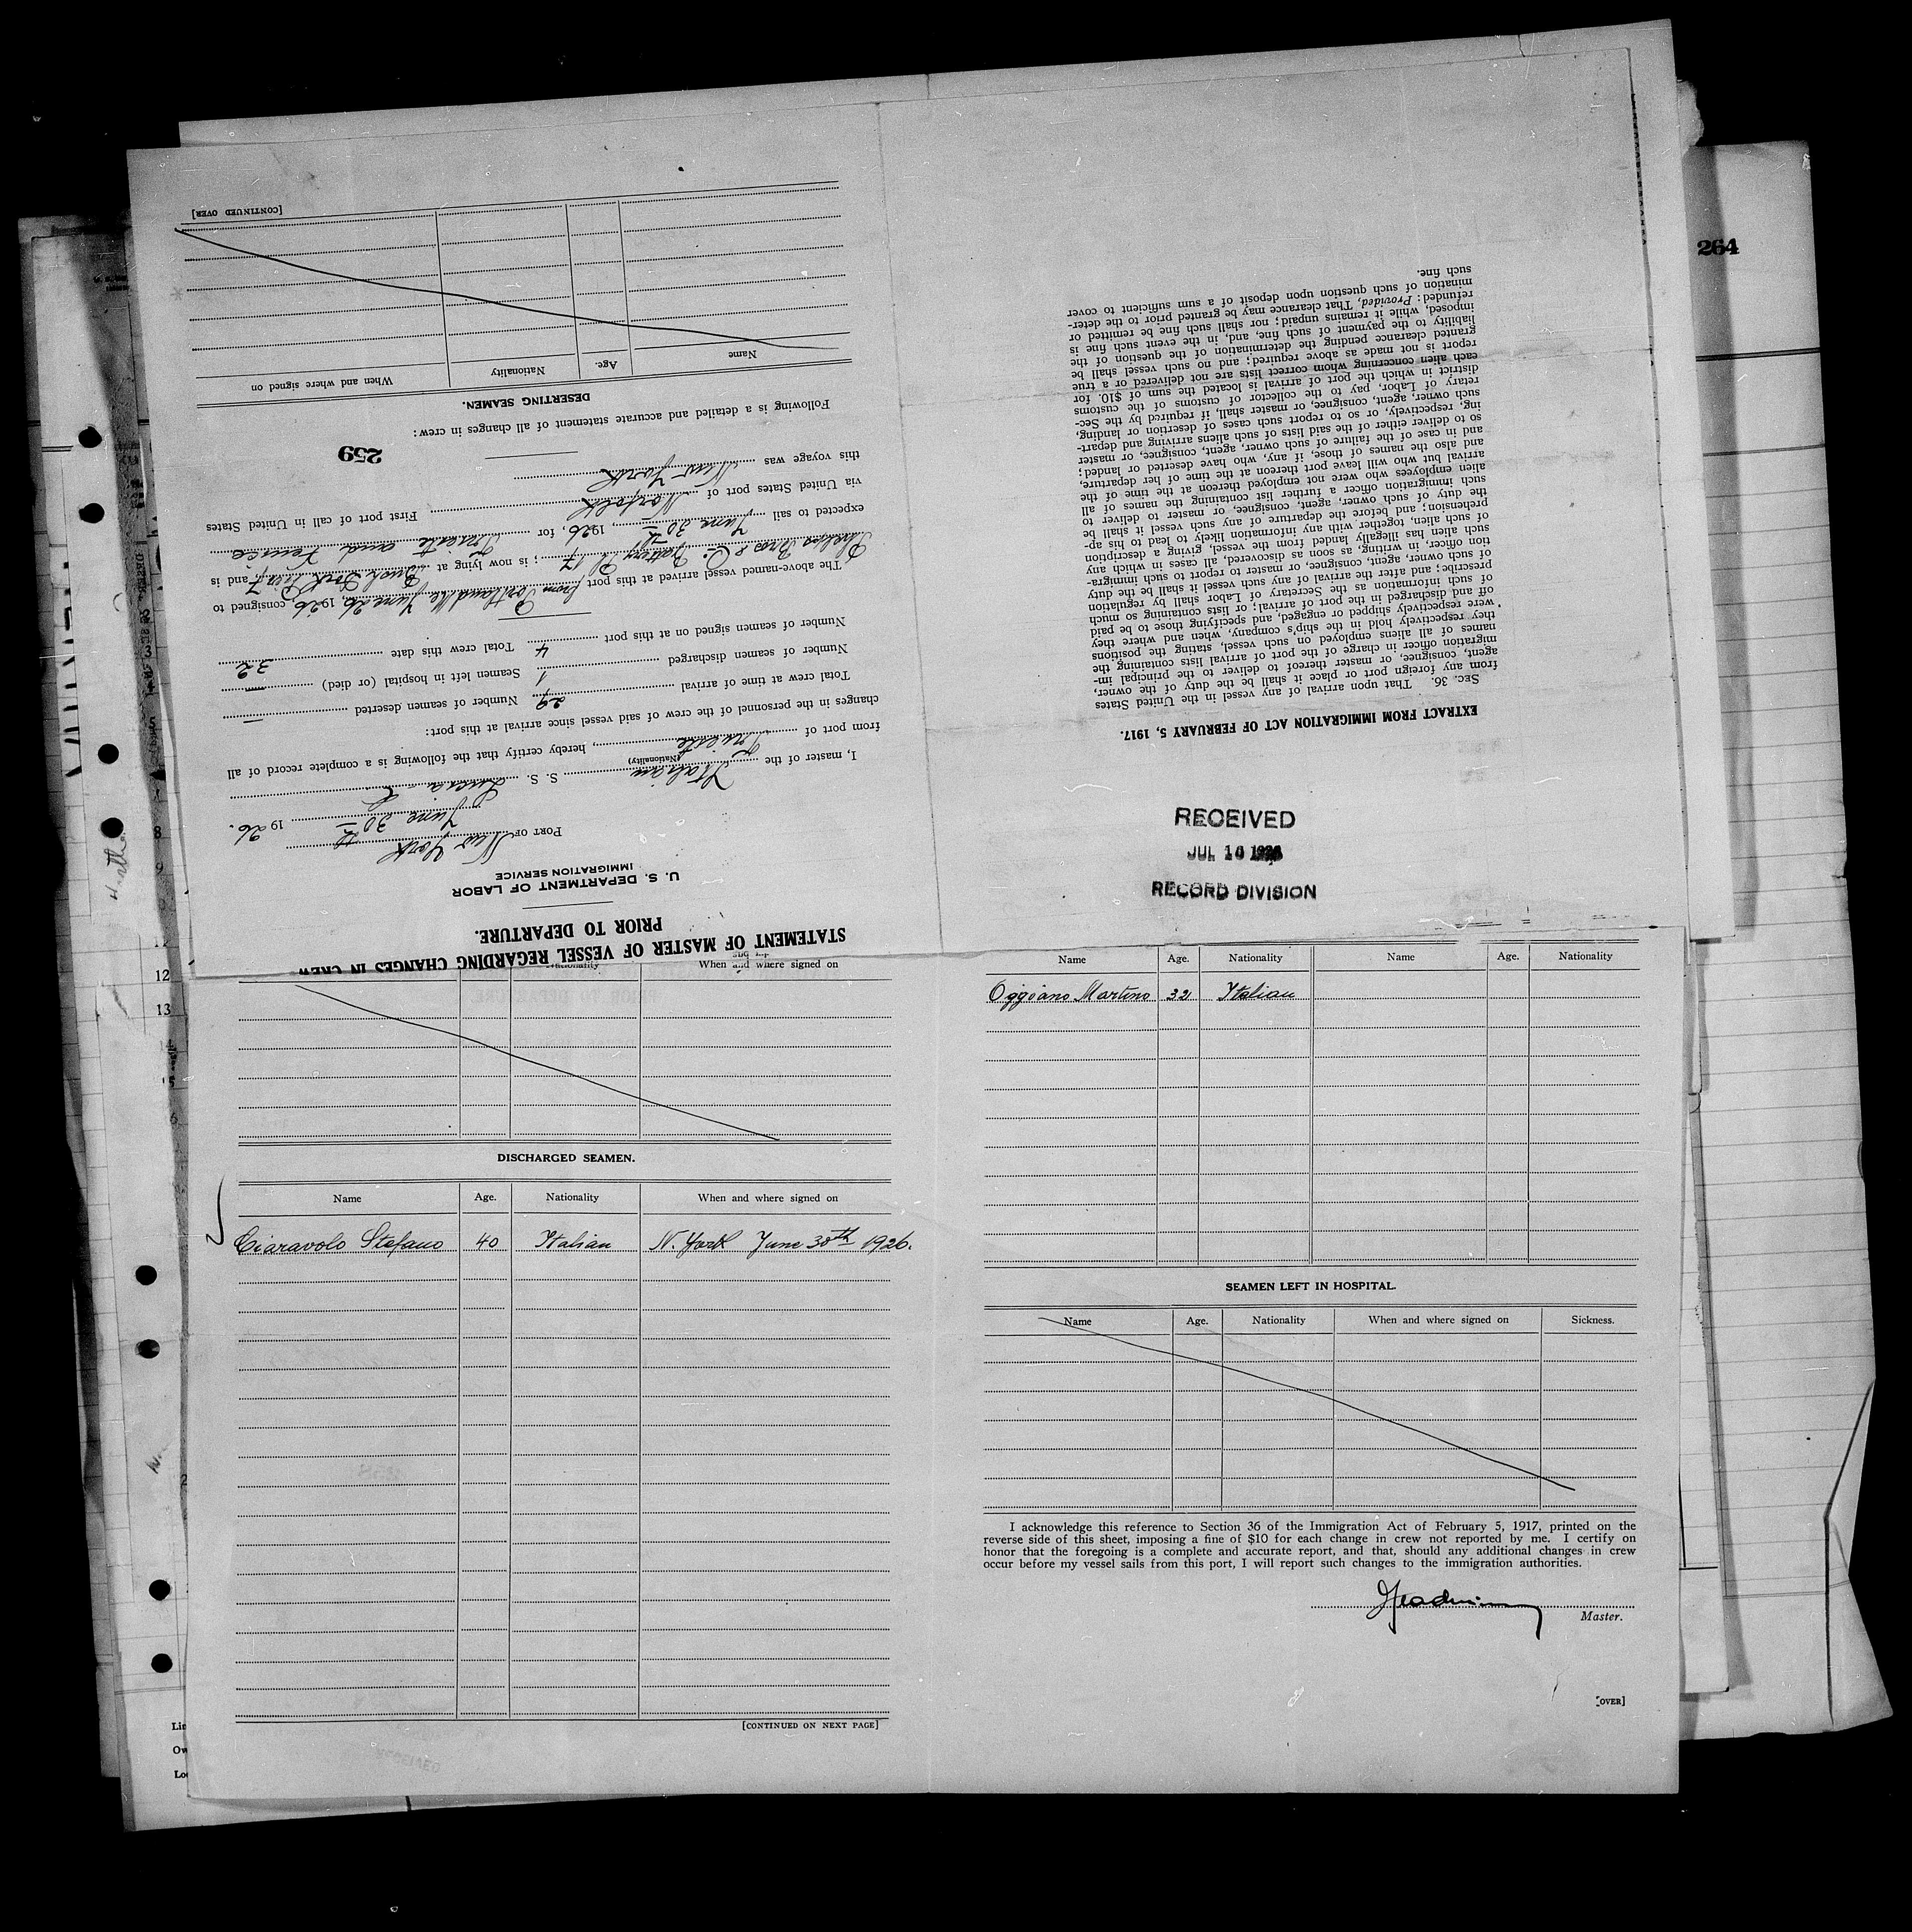 264
STATEMENT OF MASTER OF VESSEL REGARDING CHANGES IN CREW
PRIOR TO DEPARTURE.
U. S. DEPARTMENT OF LABOR
IMMIGRATION SERVICE
PORT OF New York
June 30th 1926.
I, master of the Italian S. S. Lucia C
(Nationality)
from port of Trieste, hereby certify that the following is a complete record of all
changes in the personnel of the crew of said vessel since arrival at this port:
Total crew at time of arrival 29 Number of seamen deserted —
Number of seamen discharged 1 Seamen left in hospital (or died) —
Number of seamen signed on at this port 4 Total crew this date 32
The above-named vessel arrived at this port from Portland Me June 26, 1926, consigned to
Bros & Co Battery Pl 17; is now lying at Bush Dock Pier 7, and is
expected to sail June 30th, 1926, for Trieste and Venice
via United States port of Norfolk. First port of call in United States
this voyage was New York
259
Following is a detailed and accurate statement of all changes in crew:
DESERTING SEAMEN.
Name Age. Nationality When and where signed on
[CONTINUED OVER]
EXTRACT FROM IMMIGRATION ACT OF FEBRUARY 5, 1917.
SEC. 36. That upon arrival of any vessel in the United States
from any foreign port or place it shall be the duty of the owner,
agent, consignee, or master thereof to deliver to the principal im-
migration officer in charge of the port of arrival lists containing the
names of all aliens employed on such vessel, stating the positions
they respectively hold in the ship's company, when and where they
were respectively shipped or engaged, and specifying those to be paid
off and discharged in the port of arrival; or lists containing so much
of such information as the Secretary of Labor shall by regulation
prescribe; and after the arrival of any such vessel it shall be the duty
of such owner, agent, consignee, or master to report to such immigra-
tion officer, in writing, as soon as discovered, all cases in which any
such alien has illegally landed from the vessel, giving a description
of such alien, together with any information likely to lead to his ap-
prehension; and before the departure of any such vessel it shall be
the duty of such owner, agent, consignee, or master to deliver to
such immigration officer a further list containing the names of all
alien employees who were not employed thereon at the time of the
arrival but who will leave port thereon at the time of her departure,
and also the names of those, if any, who have deserted or landed;
and in case of the failure of such owner, agent, consignee, or master
so to deliver either of the said lists of such aliens arriving and depart-
ing, respectively, or so to report such cases of desertion or landing,
such owner, agent, consignee, or master shall, if required by the Sec-
retary of Labor, pay to the collector of customs of the customs
district in which the port of arrival is located the sum of $10. for
each alien concerning whom correct lists are not delivered or a true
report is not made as above required; and no such vessel shall be
granted clearance pending the determination of the question of the
liability to the payment of such fine, and, in the event such fine is
imposed, while it remains unpaid; nor shall such fine be remitted or
refunded: Provided, That clearance may be granted prior to the deter-
mination of such question upon deposit of a sum sufficient to cover
such fine.
RECEIVED
JUL 10 1926
RECORD DIVISION
Nationality When and where signed on
DISCHARGED SEAMEN.
Name Age. Nationality When and where signed on
Ciaravolo Stefano 40 Italian N. York June 30th 1926.
[CONTINUED ON NEXT PAGE]
Name Age. Nationality Name Age. Nationality
Oggiano Martino 32 Italian
SEAMEN LEFT IN HOSPITAL.
Name Age. Nationality When and where signed on Sickness.
I acknowledge this reference to Section 36 of the Immigration Act of February 5, 1917, printed on the
reverse side of this sheet, imposing a fine of $10 for each change in crew not reported by me. I certify on
honor that the foregoing is a complete and accurate report, and that, should any additional changes in crew
occur before my vessel sails from this port, I will report such changes to the immigration authorities.
Master.
[OVER]
8
9
12
13
14